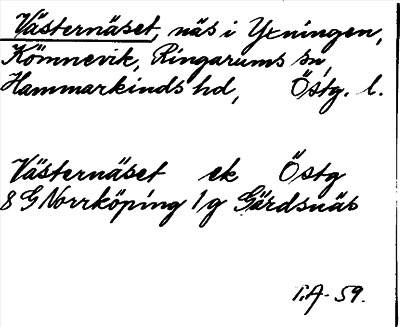 Västernäset, näs i Yxningen,
Kömnevik, Ringarums sn,
Hammarkinds hd, Östg. l.
Västernäset ek Östg
8 G Norrköping 1 g Gärdsnäs
T.A. 59.